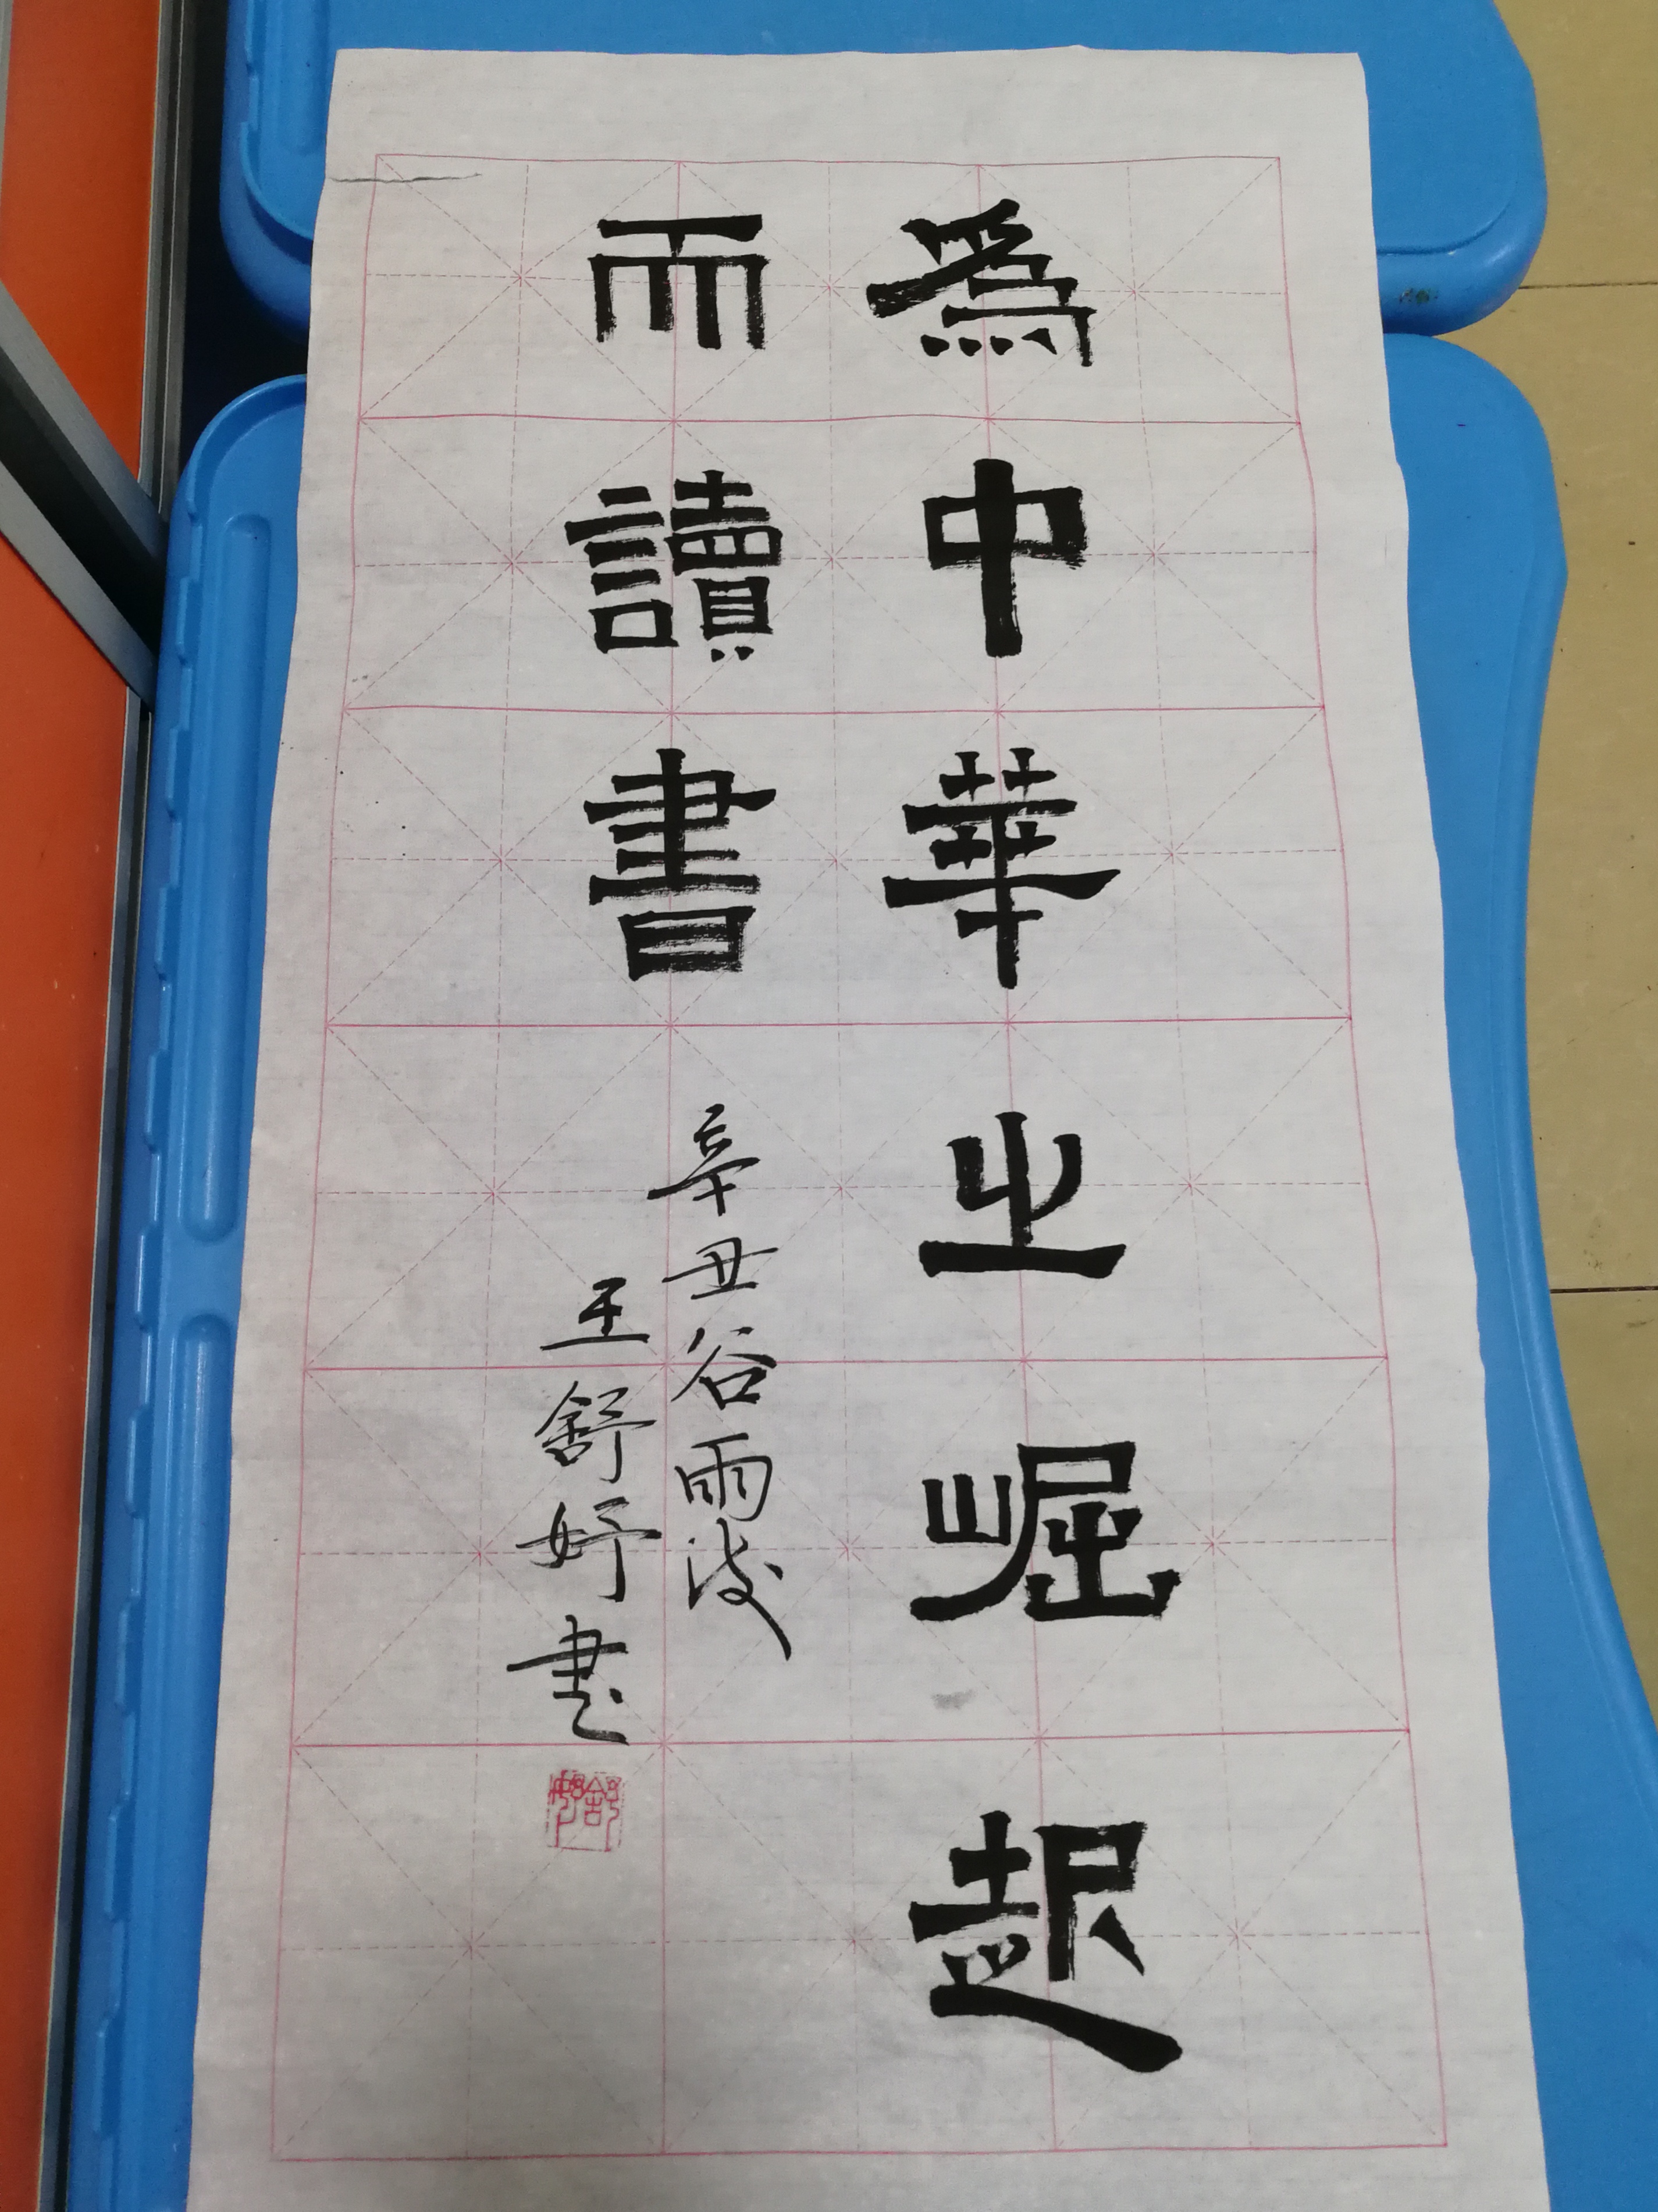 為中華之崛起
而讀書
辛丑谷雨後
王舒妤書
舒妤